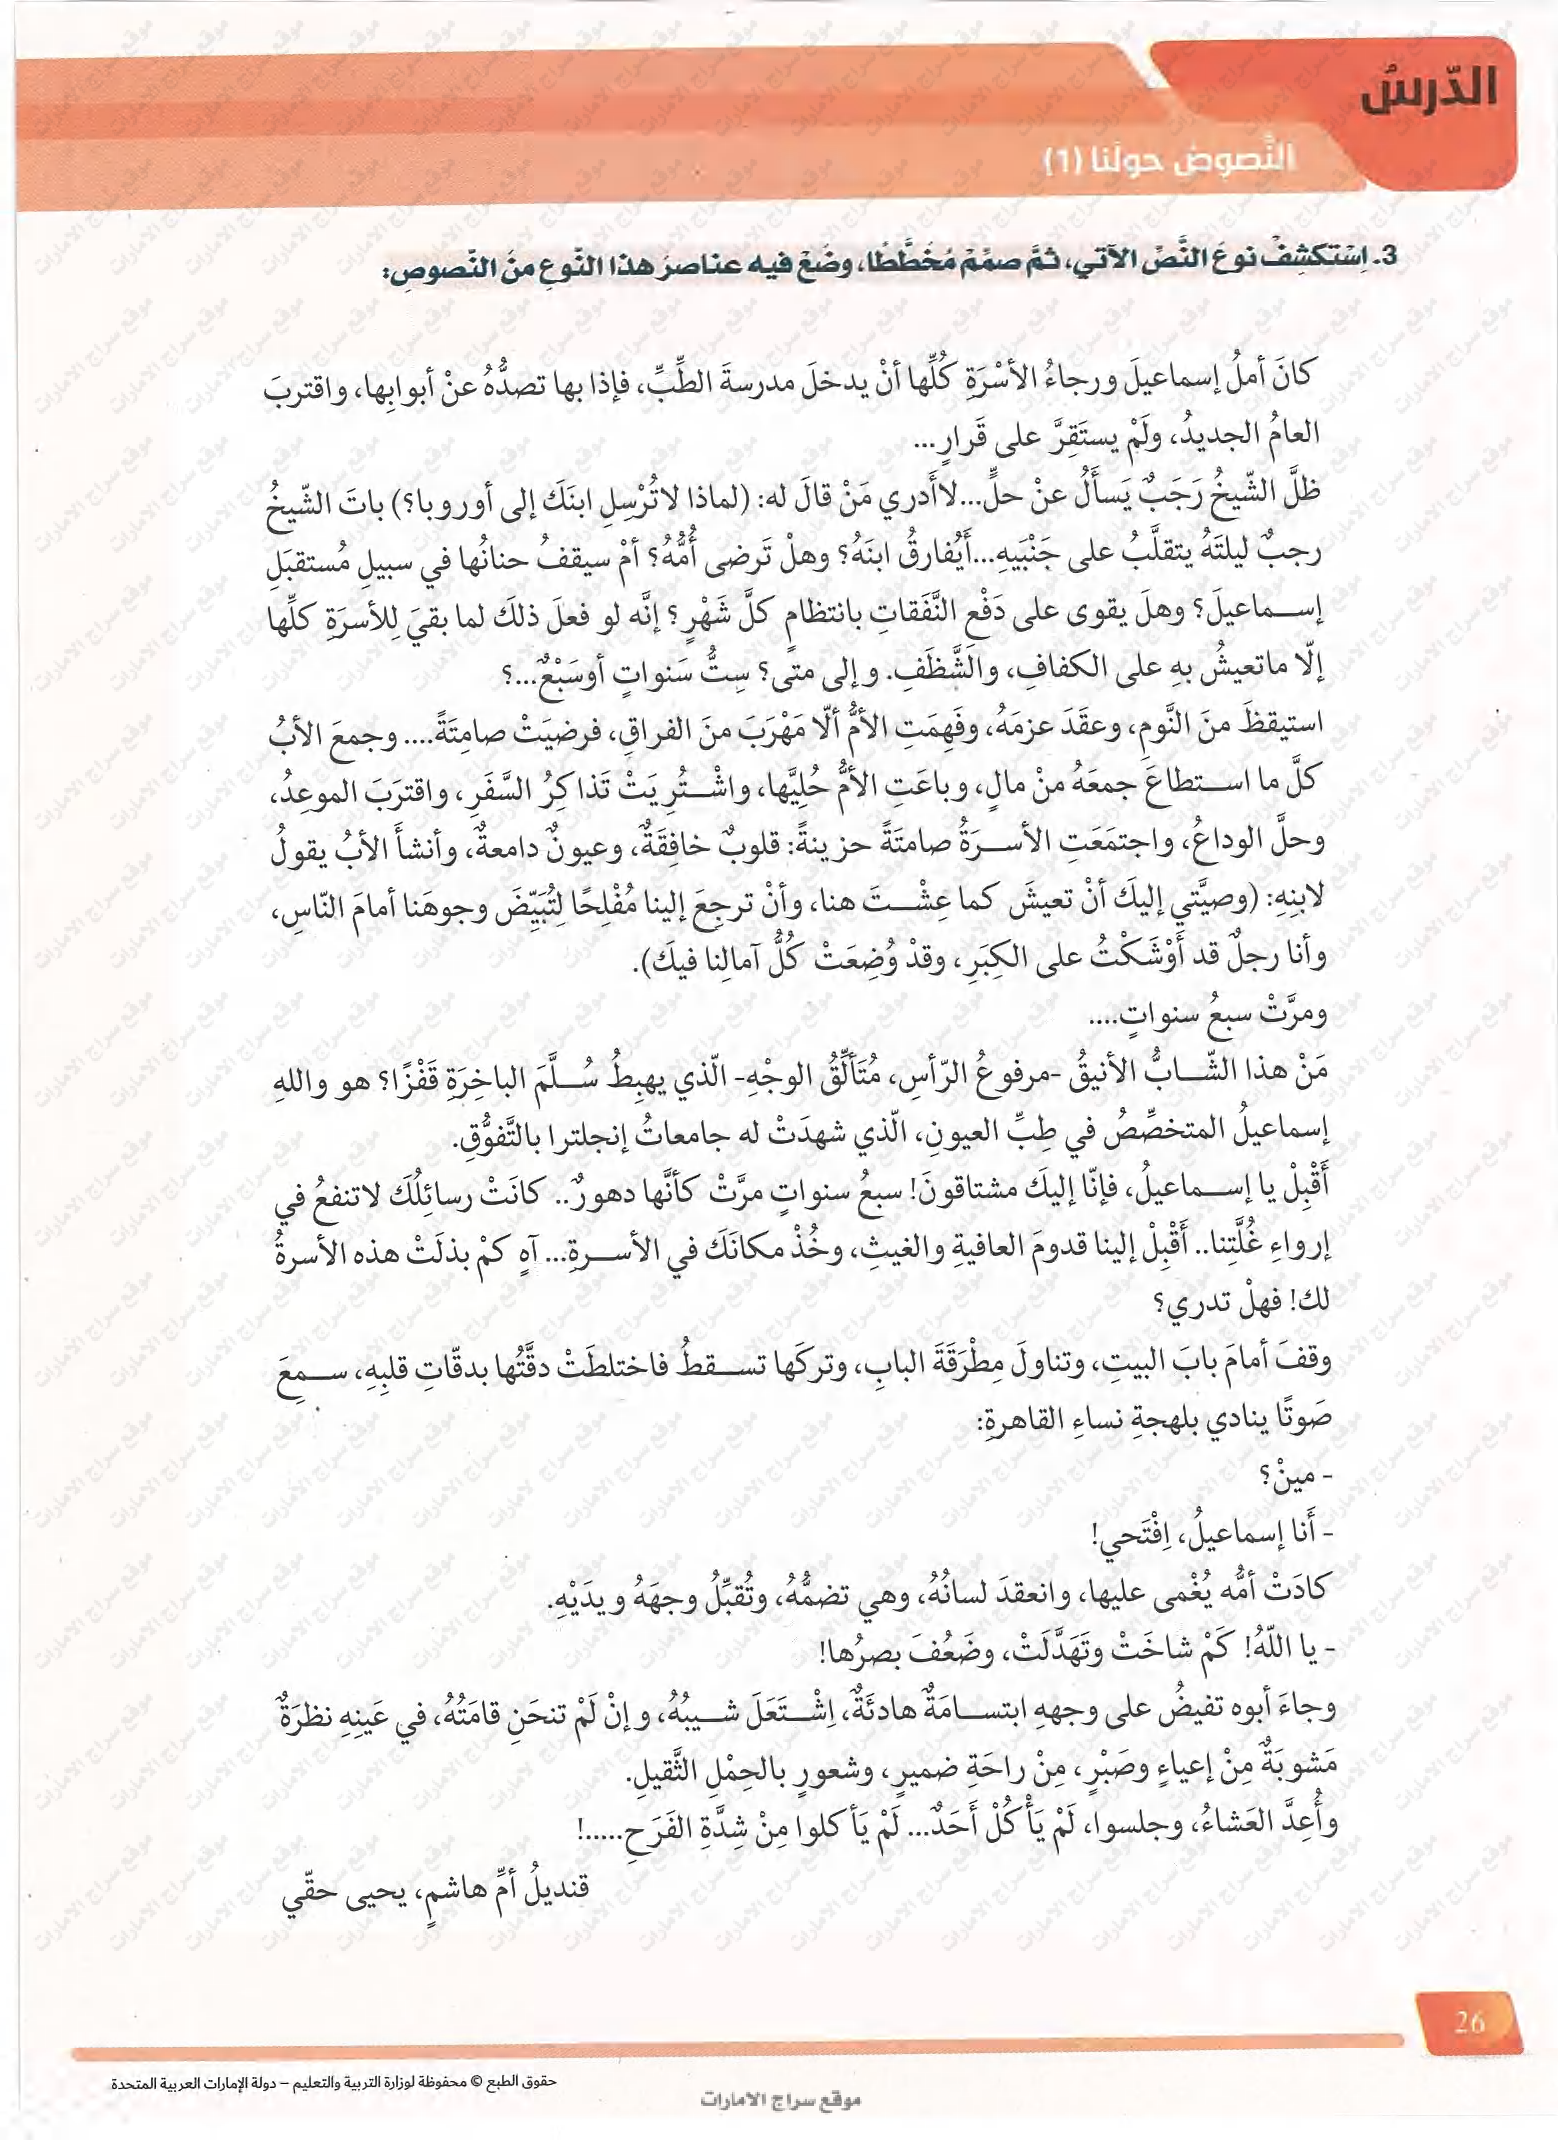 الدّرسُ
النُّصوصُ حولَنا (1)
3. اِسْتكشِفْ نوعَ النَّصِّ الآتي، ثمَّ صمِّمْ مُخَطَّطًا، وضَعْ فيه عناصرَ هذا النّوعِ منَ النّصوصِ:
كانَ أملُ إسماعيلَ ورجاءُ الأسْرَةِ كُلِّها أنْ يدخلَ مدرسةَ الطِّبِّ، فإذا بها تصدُّهُ عنْ أبوابِها، واقتربَ
العامُ الجديدُ، ولَمْ يستَقِرَّ على قَرارٍ...
ظلَّ الشّيخُ رَجَبٌ يَسأَلُ عنْ حلٍّ...لاأَدري مَنْ قالَ له: (لماذا لاتُرْسِلِ ابنَكَ إلى أوروبا؟) باتَ الشّيخُ
رجبٌ ليلتَهُ يتقلَّبُ على جَنْبَيهِ...أَيُفارقُ ابنَهُ؟ وهلْ تَرضى أُمُّهُ؟ أمْ سيقفُ حنانُها في سبيلِ مُستقبَلِ
إسماعيلَ؟ وهلَ يقوى على دَفْعِ النَّفَقاتِ بانتظامٍ كلَّ شَهْرٍ؟ إنَّه لو فعلَ ذلكَ لما بقيَ لِلأسرَةِ كلِّها
إلّا ماتعيشُ بهِ على الكفافِ، والشَّظَفِ. وإلى متى؟ سِتُّ سَنواتٍ أوسَبْعٌ...؟
استيقظَ منَ النَّومِ، وعقَدَ عزمَهُ، وفَهِمَتِ الأمُّ ألّا مَهْرَبَ منَ الفراقِ، فرضيَتْ صامِتَةً.... وجمعَ الأبُ
كلَّ ما استطاعَ جمعَهُ منْ مالٍ، وباعَتِ الأمُّ حُلِيَّها، واشْتُرِيَتْ تَذاكِرُ السَّفَرِ، واقتَرَبَ الموعِدُ،
وحلَّ الوداعُ، واجتمَعَتِ الأسرَةُ صامتَةً حزينةً: قلوبٌ خافِقَةٌ، وعيونٌ دامعةٌ، وأنشأَ الأبُ يقولُ
لابنِهِ: (وصيَّتي إليكَ أنْ تعيشَ كما عِشْتَ هنا، وأنْ ترجِعَ إلينا مُفْلِحًا لِتُبَيِّضَ وجوهَنا أمامَ النّاسِ،
وأنا رجلٌ قد أَوْشَكْتُ على الكِبَرِ، وقدْ وُضِعَتْ كُلُّ آمالِنا فيكَ).
ومرَّتْ سبعُ سنواتٍ....
مَنْ هذا الشّابُّ الأنيقُ -مرفوعُ الرّأسِ، مُتَألِّقُ الوجْهِ- الّذي يهبِطُ سُلَّمَ الباخِرَةِ قَفْزًا؟ هو واللهِ
إسماعيلُ المتخصِّصُ في طِبِّ العيونِ، الّذي شهدَتْ له جامعاتُ إنجلترا بالتَّفوُّقِ.
أَقْبِلْ يا إسماعيلُ، فإنّا إليكَ مشتاقونَ! سبعُ سنواتٍ مرَّتْ كأنَّها دهورٌ.. كانَتْ رسائلُكَ لاتنفعُ في
إرواءِ غُلَّتِنا.. أَقْبِلْ إلينا قدومَ العافيةِ والغيثِ، وخُذْ مكانَكَ في الأسرةِ... آهٍ كمْ بذلَتْ هذه الأسرةُ
لك! فهلْ تدري؟
وقفَ أمامَ بابَ البيتِ، وتناولَ مِطْرَقَةَ البابِ، وتركَها تسقطُ فاختلطَتْ دقَّتُها بدقّاتِ قلبِهِ، سمِعَ
صَوتًا ينادي بلهجةِ نساءِ القاهرةِ:
- مينْ؟
- أَنا إسماعيلُ، اِفْتَحي!
كادَتْ أمُّه يُغْمى عليها، وانعقدَ لسانُهُ، وهي تضمُّهُ، وتُقبِّلُ وجهَهُ ويدَيْهِ.
- يا اللّهُ! كَمْ شاخَتْ وتَهَدَّلَتْ، وضَعُفَ بصرُها!
وجاءَ أبوه تفيضُ على وجههِ ابتسامَةٌ هادئَةٌ، اِشْتَعَلَ شيبُهُ، وإنْ لَمْ تنحَنِ قامَتُهُ، في عَينِهِ نظرَةٌ
مَشوبَةٌ مِنْ إعياءٍ وصَبْرٍ، مِنْ راحَةِ ضميرٍ، وشعورٍ بالحِمْلِ الثَّقيلِ.
وأُعِدَّ العَشاءُ، وجلسوا، لَمْ يَأْكُلْ أَحَدٌ... لَمْ يَأكلوا مِنْ شِدَّةِ الفَرَحِ.....!
قنديلُ أمِّ هاشمٍ، يحيى حقّي
26
حقوق الطبع © محفوظة لوزارة التربية والتعليم – دولة الإمارات العربية المتحدة
موقع سراج الامارات